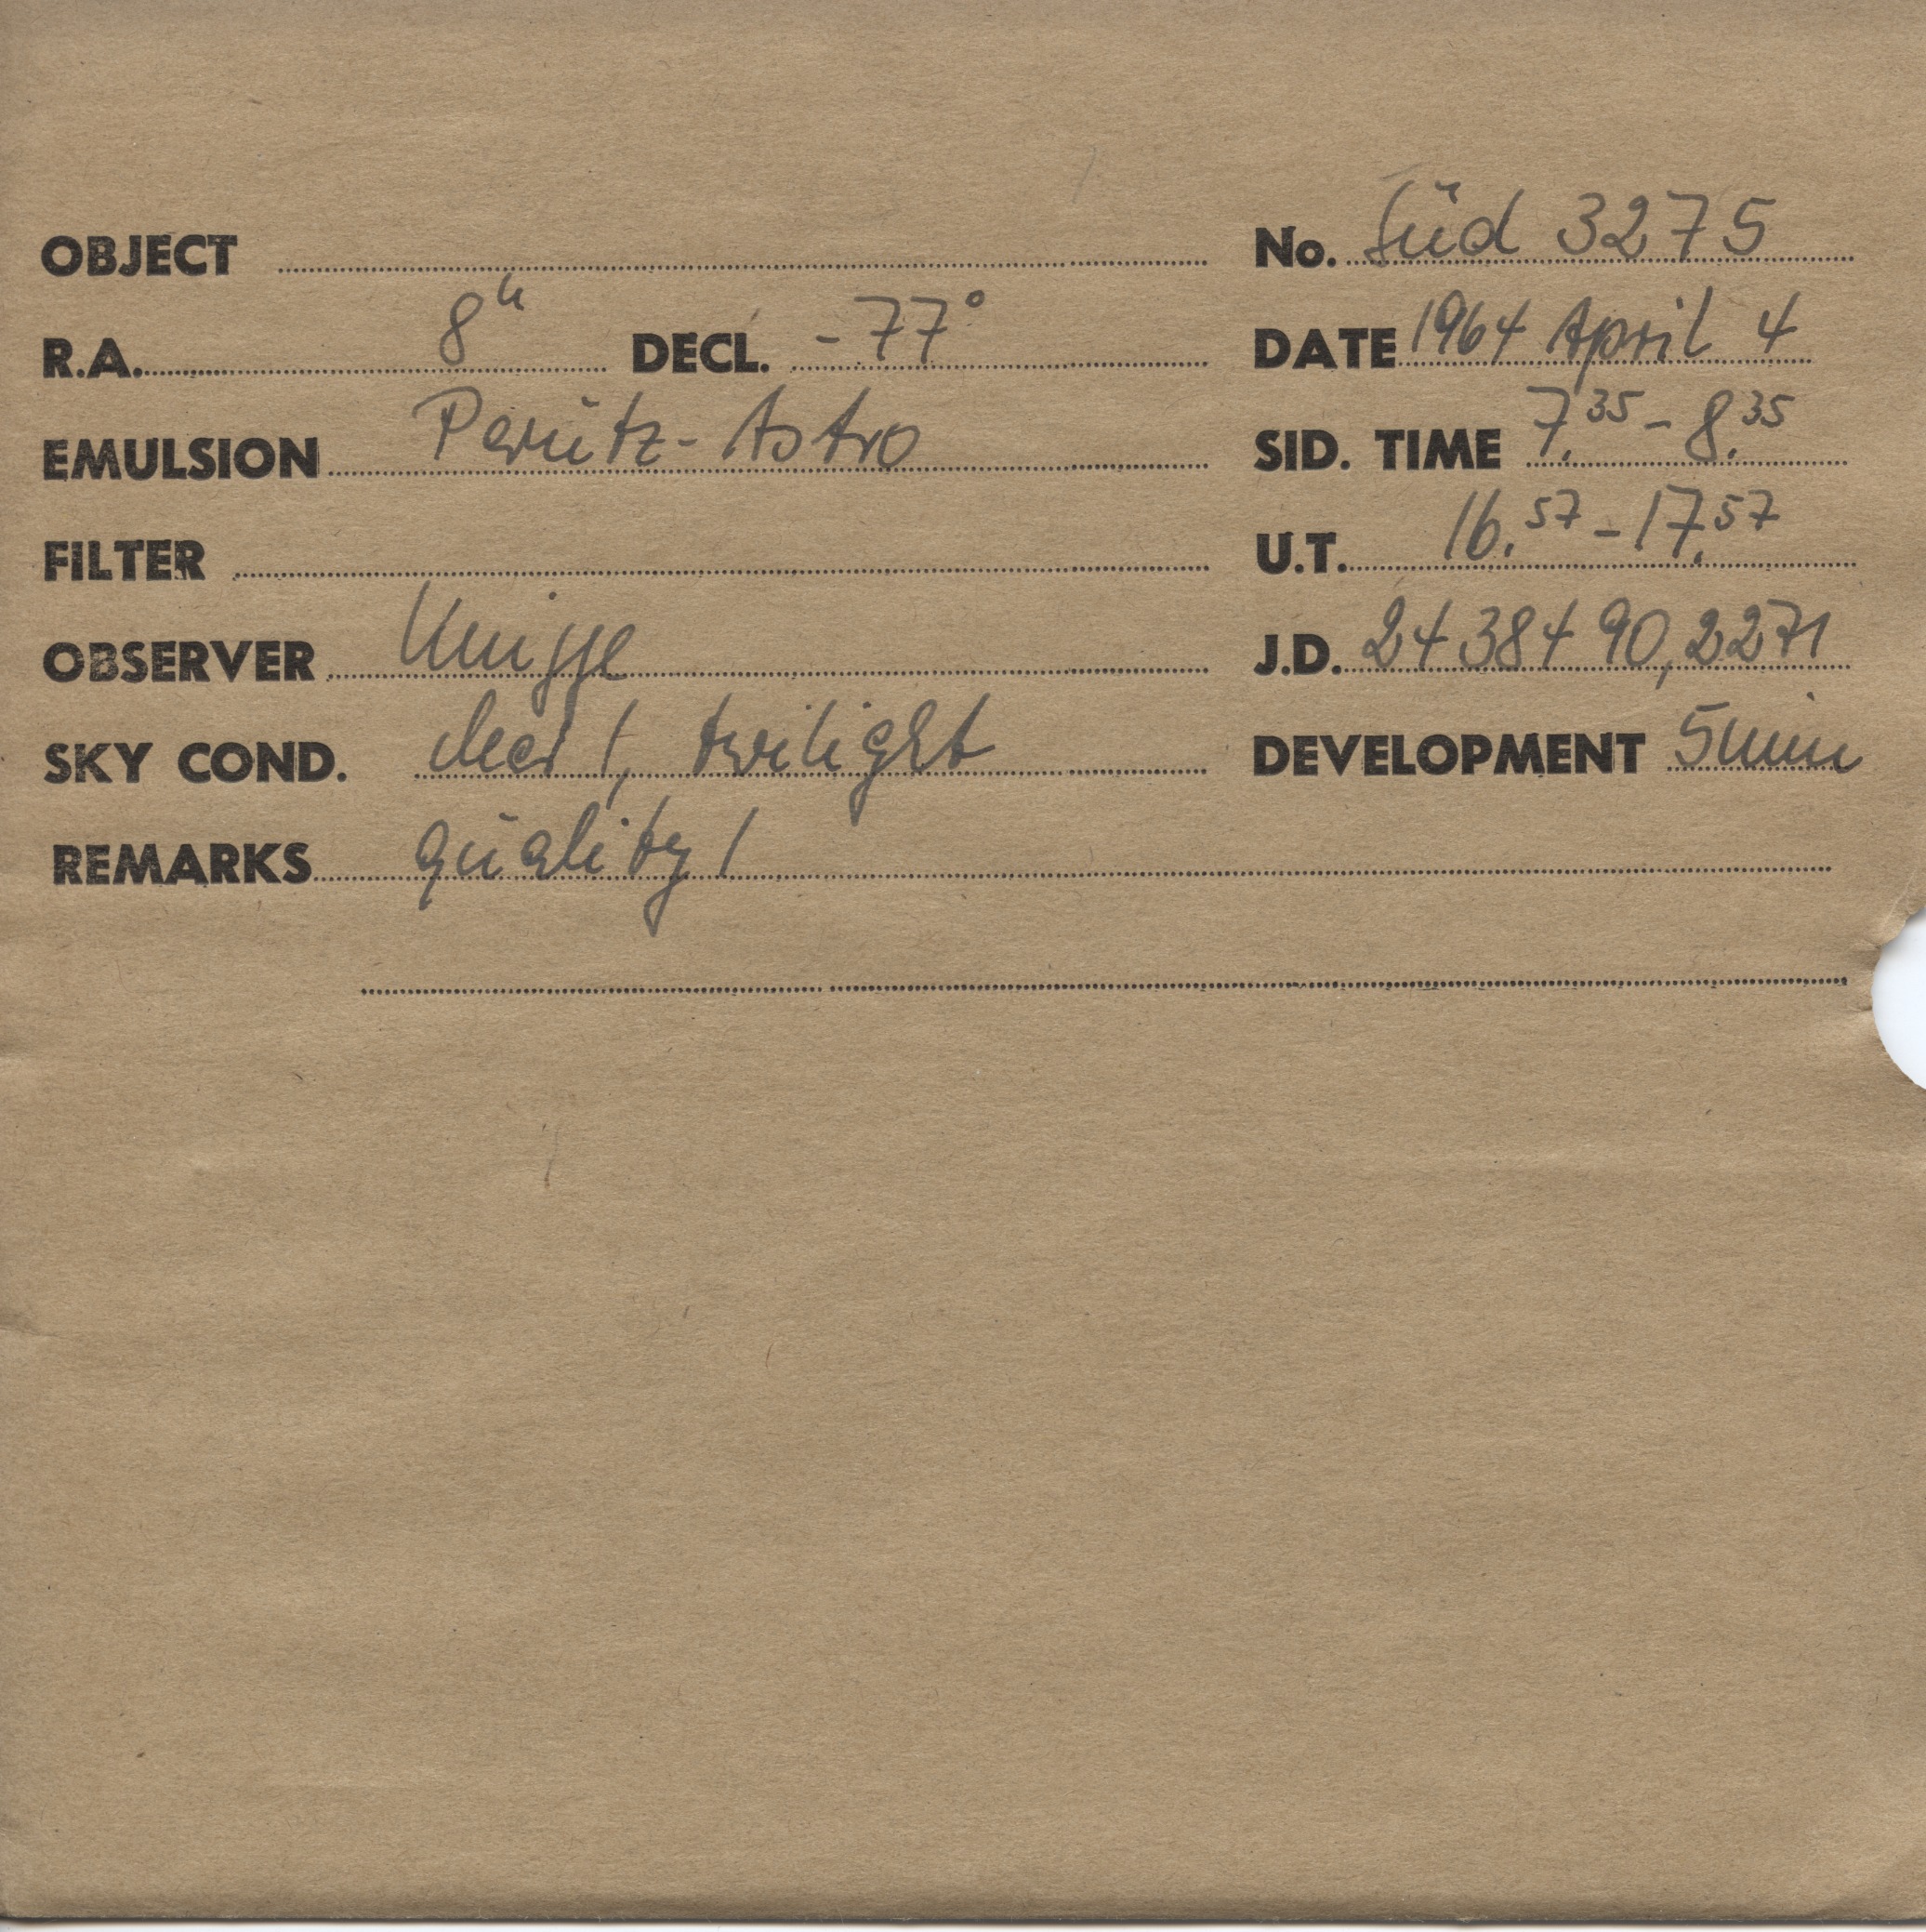 OBJECT No. Süd 3275
R.A. 8h DECL. -77° DATE 1964 April 4
EMULSION Perutz-Astro SID. TIME 7.35 - 8.35
FILTER U.T. 16.57 - 17.57
OBSERVER Knigge J.D. 24 384 90,2271
SKY COND. clear 1, twilight DEVELOPMENT 5 min
REMARKS quality 1